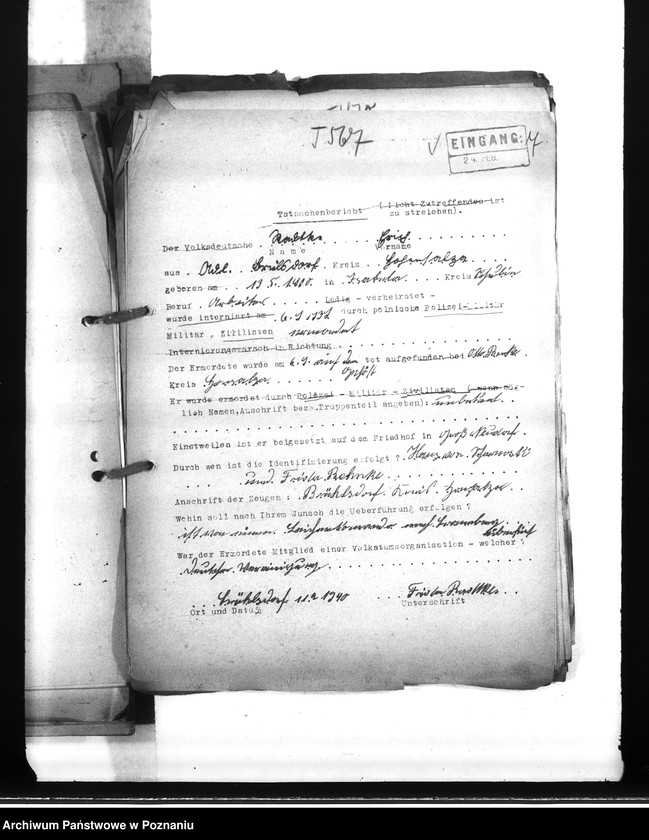 J 567
EINGANG: 4
24. FEB.
Tatsachenbericht (Nicht Zutreffendes ist
zu streichen).
Der Volksdeutsche . Radtke . . . . Erich . . . . . . . .
Name Vorname
aus . Adl. Brühlsdorf . Kreis . . Hohensalza . . . .
geboren am . . 19.5.1900. in . . . . Kreis Schubin
Beruf . Arbeiter . . . . . . Ledig - verheiratet -
wurde interniert am . 6.9.1939 durch polnische Polizei-Militär
Militär, Zivilisten ermordet
Internierungsmarsch in Richtung . . . . . . . .
Der Ermordete wurde am 6.9. auf dem tot aufgefunden bei Otto
Kreis Hohensalza . . . . . Gehöft
Er wurde ermordet durch Polizei - Militär - Zivilisten (wenn mög-
lich Namen, Anschrift bezw. Truppenteil angeben): unbekannt . .
Einstweilen ist er beigesetzt auf dem Friedhof in Groß Neudorf.
Durch wen ist die Identifizierung erfolgt ? Hermann
. . . und Frieda
Anschrift der Zeugen : Brühlsdorf. Kreis Hohensalza . .
Wohin soll nach Ihrem Wunsch die Ueberführung erfolgen ?
ist von einem Leichenkommando nach
War der Ermordete Mitglied einer Volkstumsorganisation - welcher ?
Deutsche Vereinigung . . . . . . . . . .
. . . Brühlsdorf 11.2.1940 . . . . Frieda Radtke . .
Ort und Datum Unterschrift
Archiwum Państwowe w Poznaniu